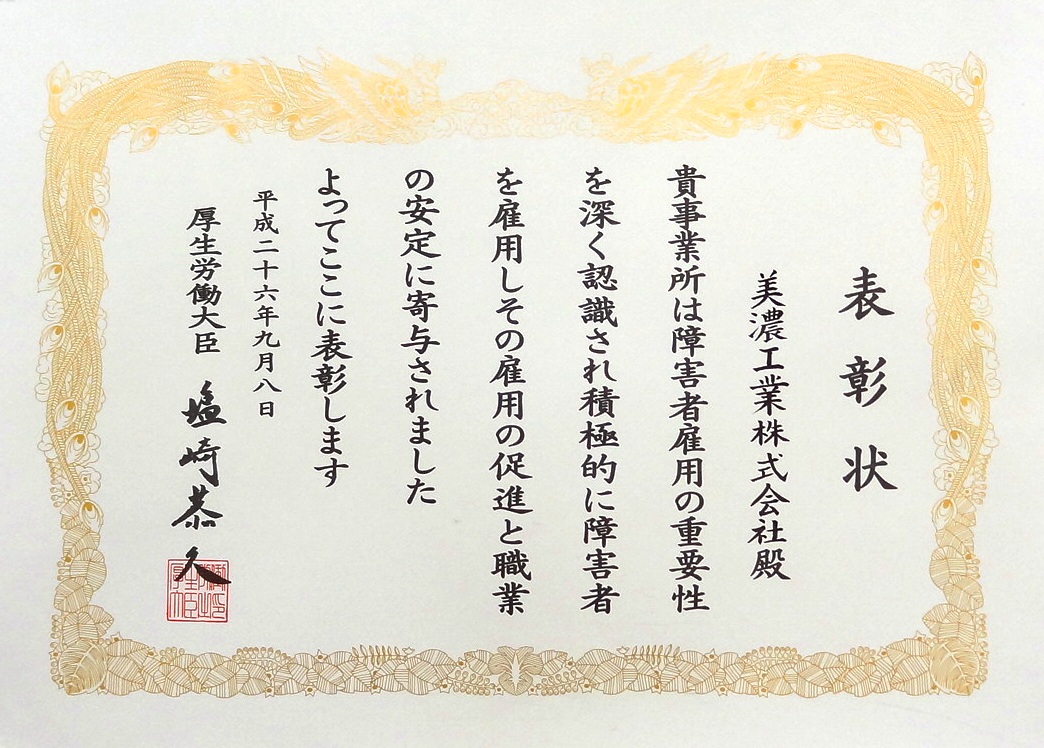 表彰状
美濃工業株式会社殿
貴事業所は障害者雇用の重要性
を深く認識され積極的に障害者
を雇用しその雇用の促進と職業
の安定に寄与されました
よってここに表彰します
平成二十六年九月八日
厚生労働大臣 塩崎恭久